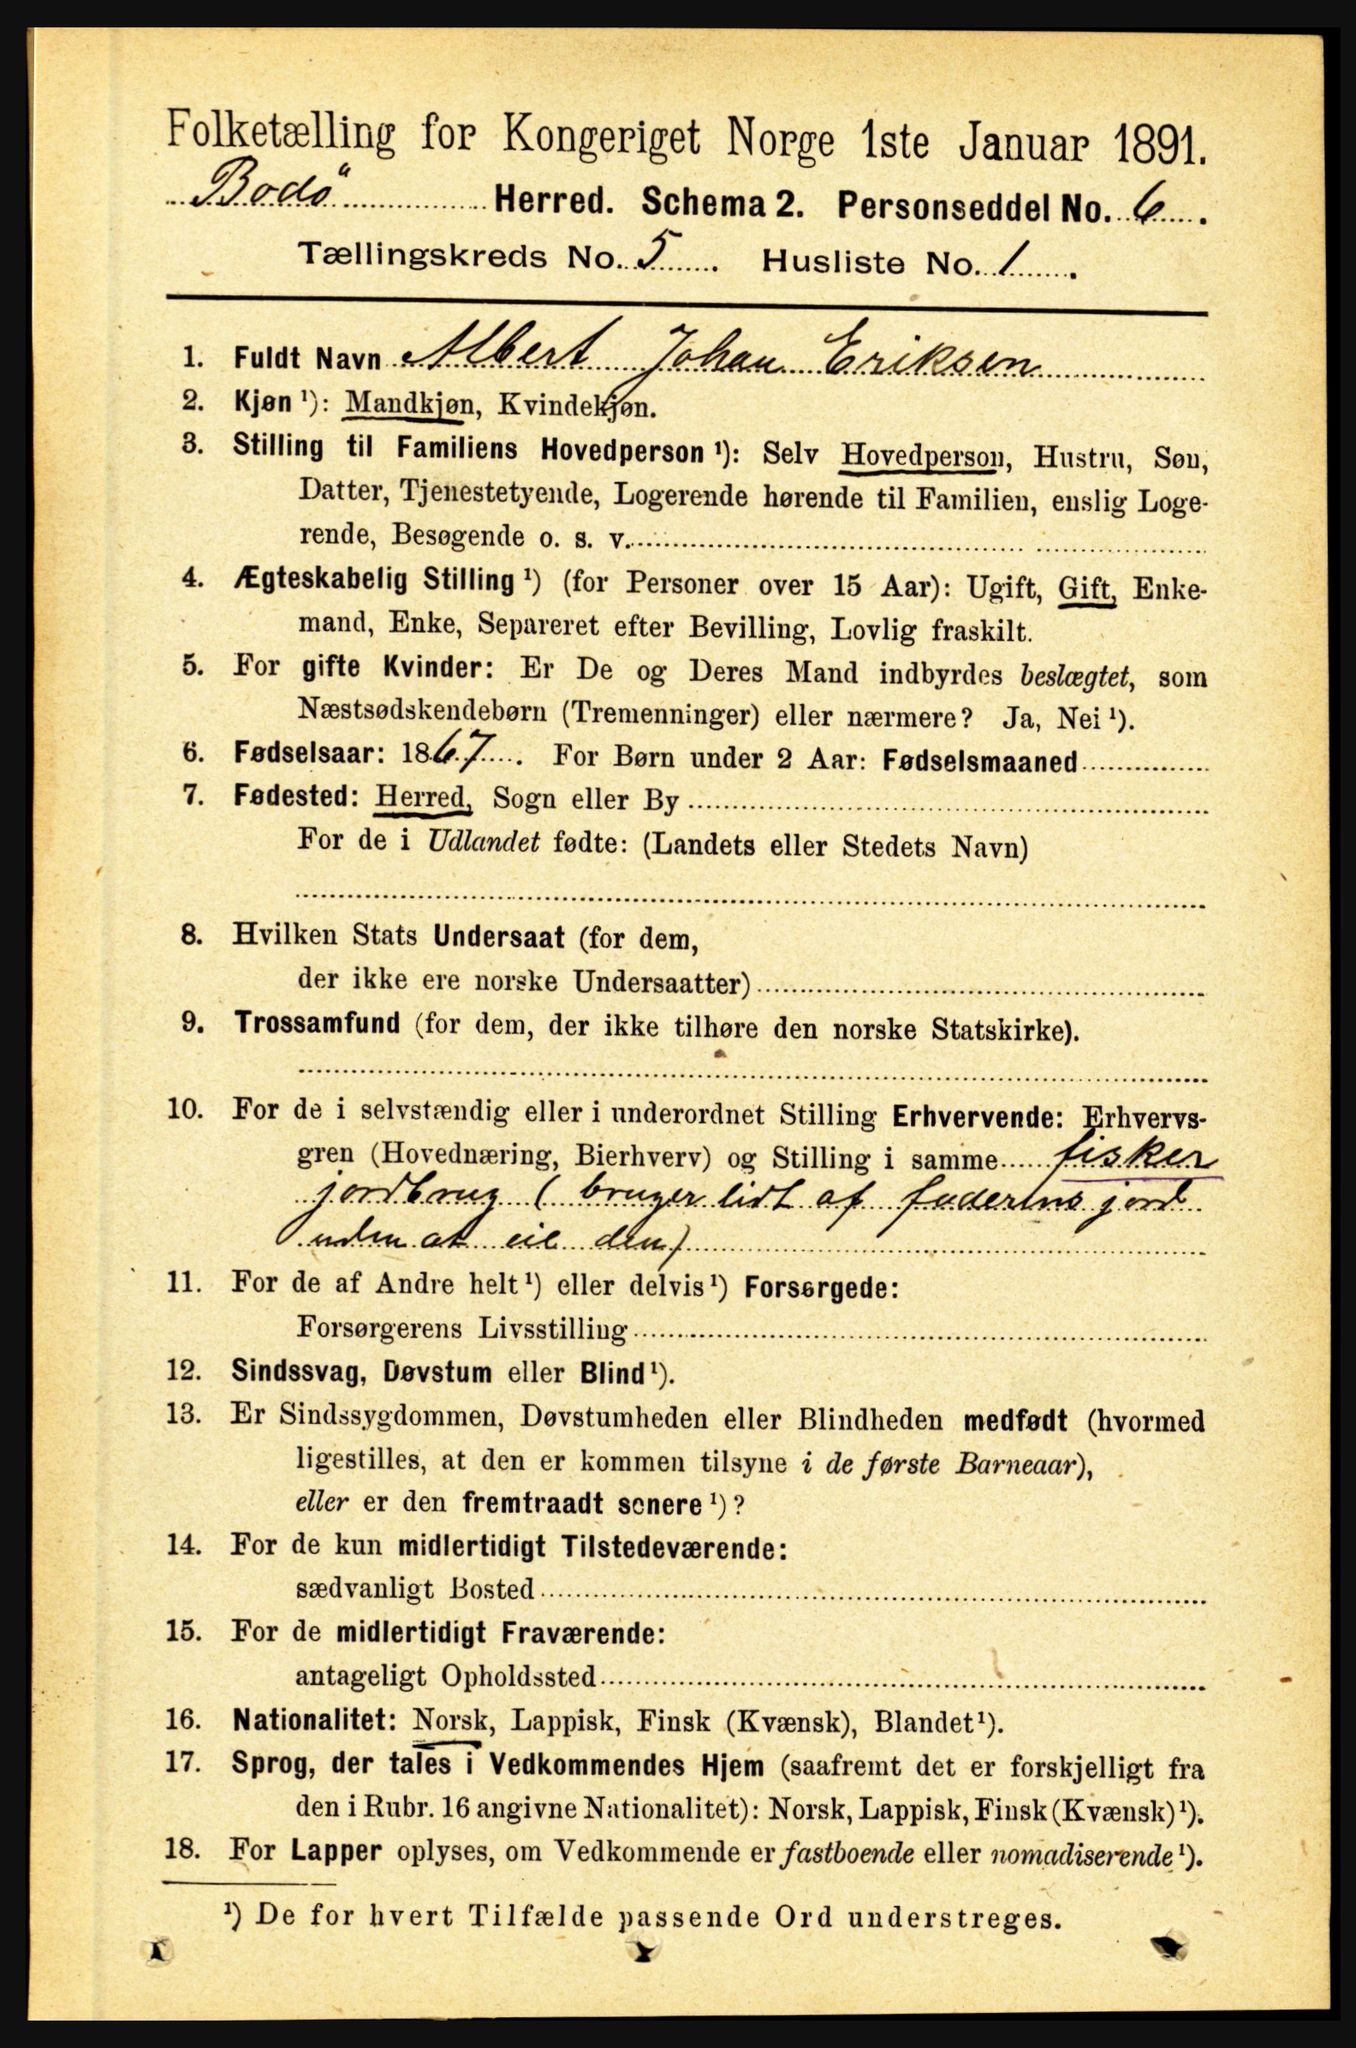 Folketælling for Kongeriget Norge 1ste Januar 1891.
Bodö Herred. Schema 2. Personseddel No. 6.
Tællingskreds No. 5. Husliste No. 1.
1. Fuldt Navn Albert Johan Eriksen
2. Kjøn ¹): Mandkjøn, Kvindekjøn.
3. Stilling til Familiens Hovedperson ¹): Selv Hovedperson, Hustru, Søn,
Datter, Tjenestetyende, Logerende hørende til Familien, enslig Loge-
rende, Besøgende o. s. v.
4. Ægteskabelig Stilling ¹) (for Personer over 15 Aar): Ugift, Gift, Enke-
mand, Enke, Separeret efter Bevilling, Lovlig fraskilt.
5. For gifte Kvinder: Er De og Deres Mand indbyrdes beslægtet, som
Næstsødskendebørn (Tremenninger) eller nærmere? Ja, Nei ¹).
6. Fødselsaar: 1867. For Børn under 2 Aar: Fødselsmaaned
7. Fødested: Herred, Sogn eller By
For de i Udlandet fødte: (Landets eller Stedets Navn)
8. Hvilken Stats Undersaat (for dem,
der ikke ere norske Undersaatter)
9. Trossamfund (for dem, der ikke tilhøre den norske Statskirke).
10. For de i selvstændig eller i underordnet Stilling Erhvervende: Erhvervs-
gren (Hovednæring, Bierhverv) og Stilling i samme fisker
jordbrug (bruger lidt af faderens jord
uden at eie den)
11. For de af Andre helt ¹) eller delvis ¹) Forsørgede:
Forsørgerens Livsstilling
12. Sindssvag, Døvstum eller Blind ¹).
13. Er Sindssygdommen, Døvstumheden eller Blindheden medfødt (hvormed
ligestilles, at den er kommen tilsyne i de første Barneaar),
eller er den fremtraadt senere ¹)?
14. For de kun midlertidigt Tilstedeværende:
sædvanligt Bosted
15. For de midlertidigt Fraværende:
antageligt Opholdssted
16. Nationalitet: Norsk, Lappisk, Finsk (Kvænsk), Blandet ¹).
17. Sprog, der tales i Vedkommendes Hjem (saafremt det er forskjelligt fra
den i Rubr. 16 angivne Nationalitet): Norsk, Lappisk, Finsk (Kvænsk) ¹).
18. For Lapper oplyses, om Vedkommende er fastboende eller nomadiserende ¹).
¹) De for hvert Tilfælde passende Ord understreges.